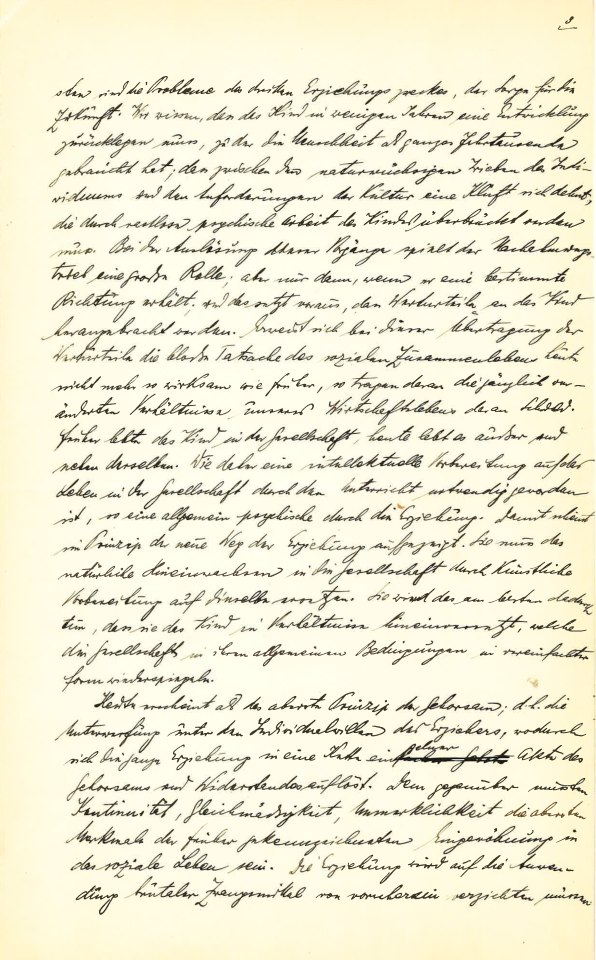 3
sten sind die Probleme des dritten Erziehungszweckes, der Sorge für die
Zukunft. Wir wissen, dass das Kind in wenigen Jahren eine Entwicklung
zurücklegen muss, zu der die Menschheit als ganzes Jahrtausende
gebraucht hat; dass zwischen den naturwüchsigen Trieben des Indi-
viduums und den Anforderungen der Kultur eine Kluft sich dehnt,
die durch restlose psychische Arbeit des Kindes überbrückt werden
muss. Bei der Auslösung dieser Vorgänge spielt der Nachahmungs-
trieb eine grosse Rolle. aber nur dann, wenn er eine bestimmte
Richtung erhält; und das setzt voraus, dass Werturteile an das Kind
herangebracht werden. Erweist sich bei dieser Übertragung der
Werturteile die blosse Tatsache des sozialen Zusammenlebens heute
nicht mehr so wirksam wie früher, so tragen daran die gänzlich ver-
änderten Verhältnisse unseres Wirtschaftslebens daran Schuld.
Früher lebte das Kind in der Gesellschaft, heute lebt es ausser und
neben derselben. Wie daher eine intellektuelle Vorbereitung auf das
Leben in der Gesellschaft durch den Unterricht notwendig geworden
ist, so eine allgemein psychische durch die Erziehung. Damit scheint
im Prinzip der neue Weg der Erziehung aufgezeigt. Sie muss das
natürliche Hineinwachsen in die Gesellschaft durch künstliche
Vorbereitung auf dieselbe ersetzen. Sie wird das am besten dadurch
tun, dass sie das Kind in Verhältnisse hineinversetzt, welche
die Gesellschaft in ihren allgemeinen Bedingungen in vereinfachter
Form wiederspiegeln.
Heute erscheint als das oberste Prinzip der Gehorsam; d.h. die
Unterwerfung unter den Individualwillen des Erziehers, wodurch
sich die ganze Erziehung in eine Kette einzelner Akte des
Gehorsams und Widerstandes auflöst. Dem gegenüber müssten
Kontinuität, Gleichmässigkeit, Unmerklichkeit die obersten
Merkmale der früher gekennzeichneten Eingewöhnung in
das soziale Leben sein. Die Erziehung wird auf die Anwen-
dung brutaler Zwangsmittel von vornherein verzichten müssen